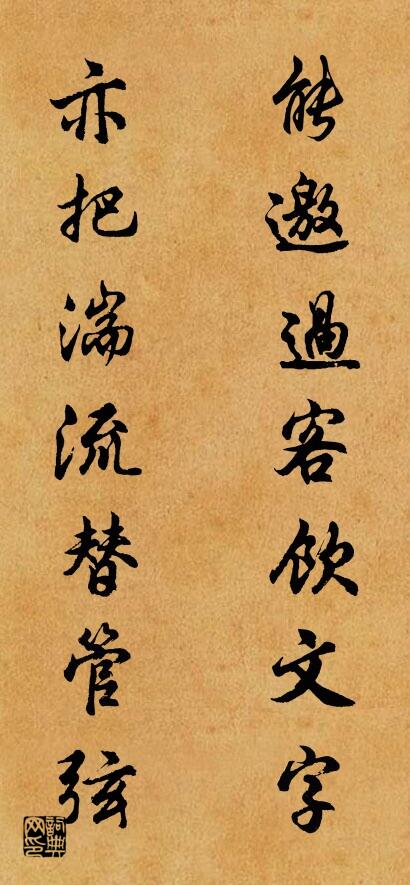 能邀過客飲文字
亦把湍流替管弦
詞典网印